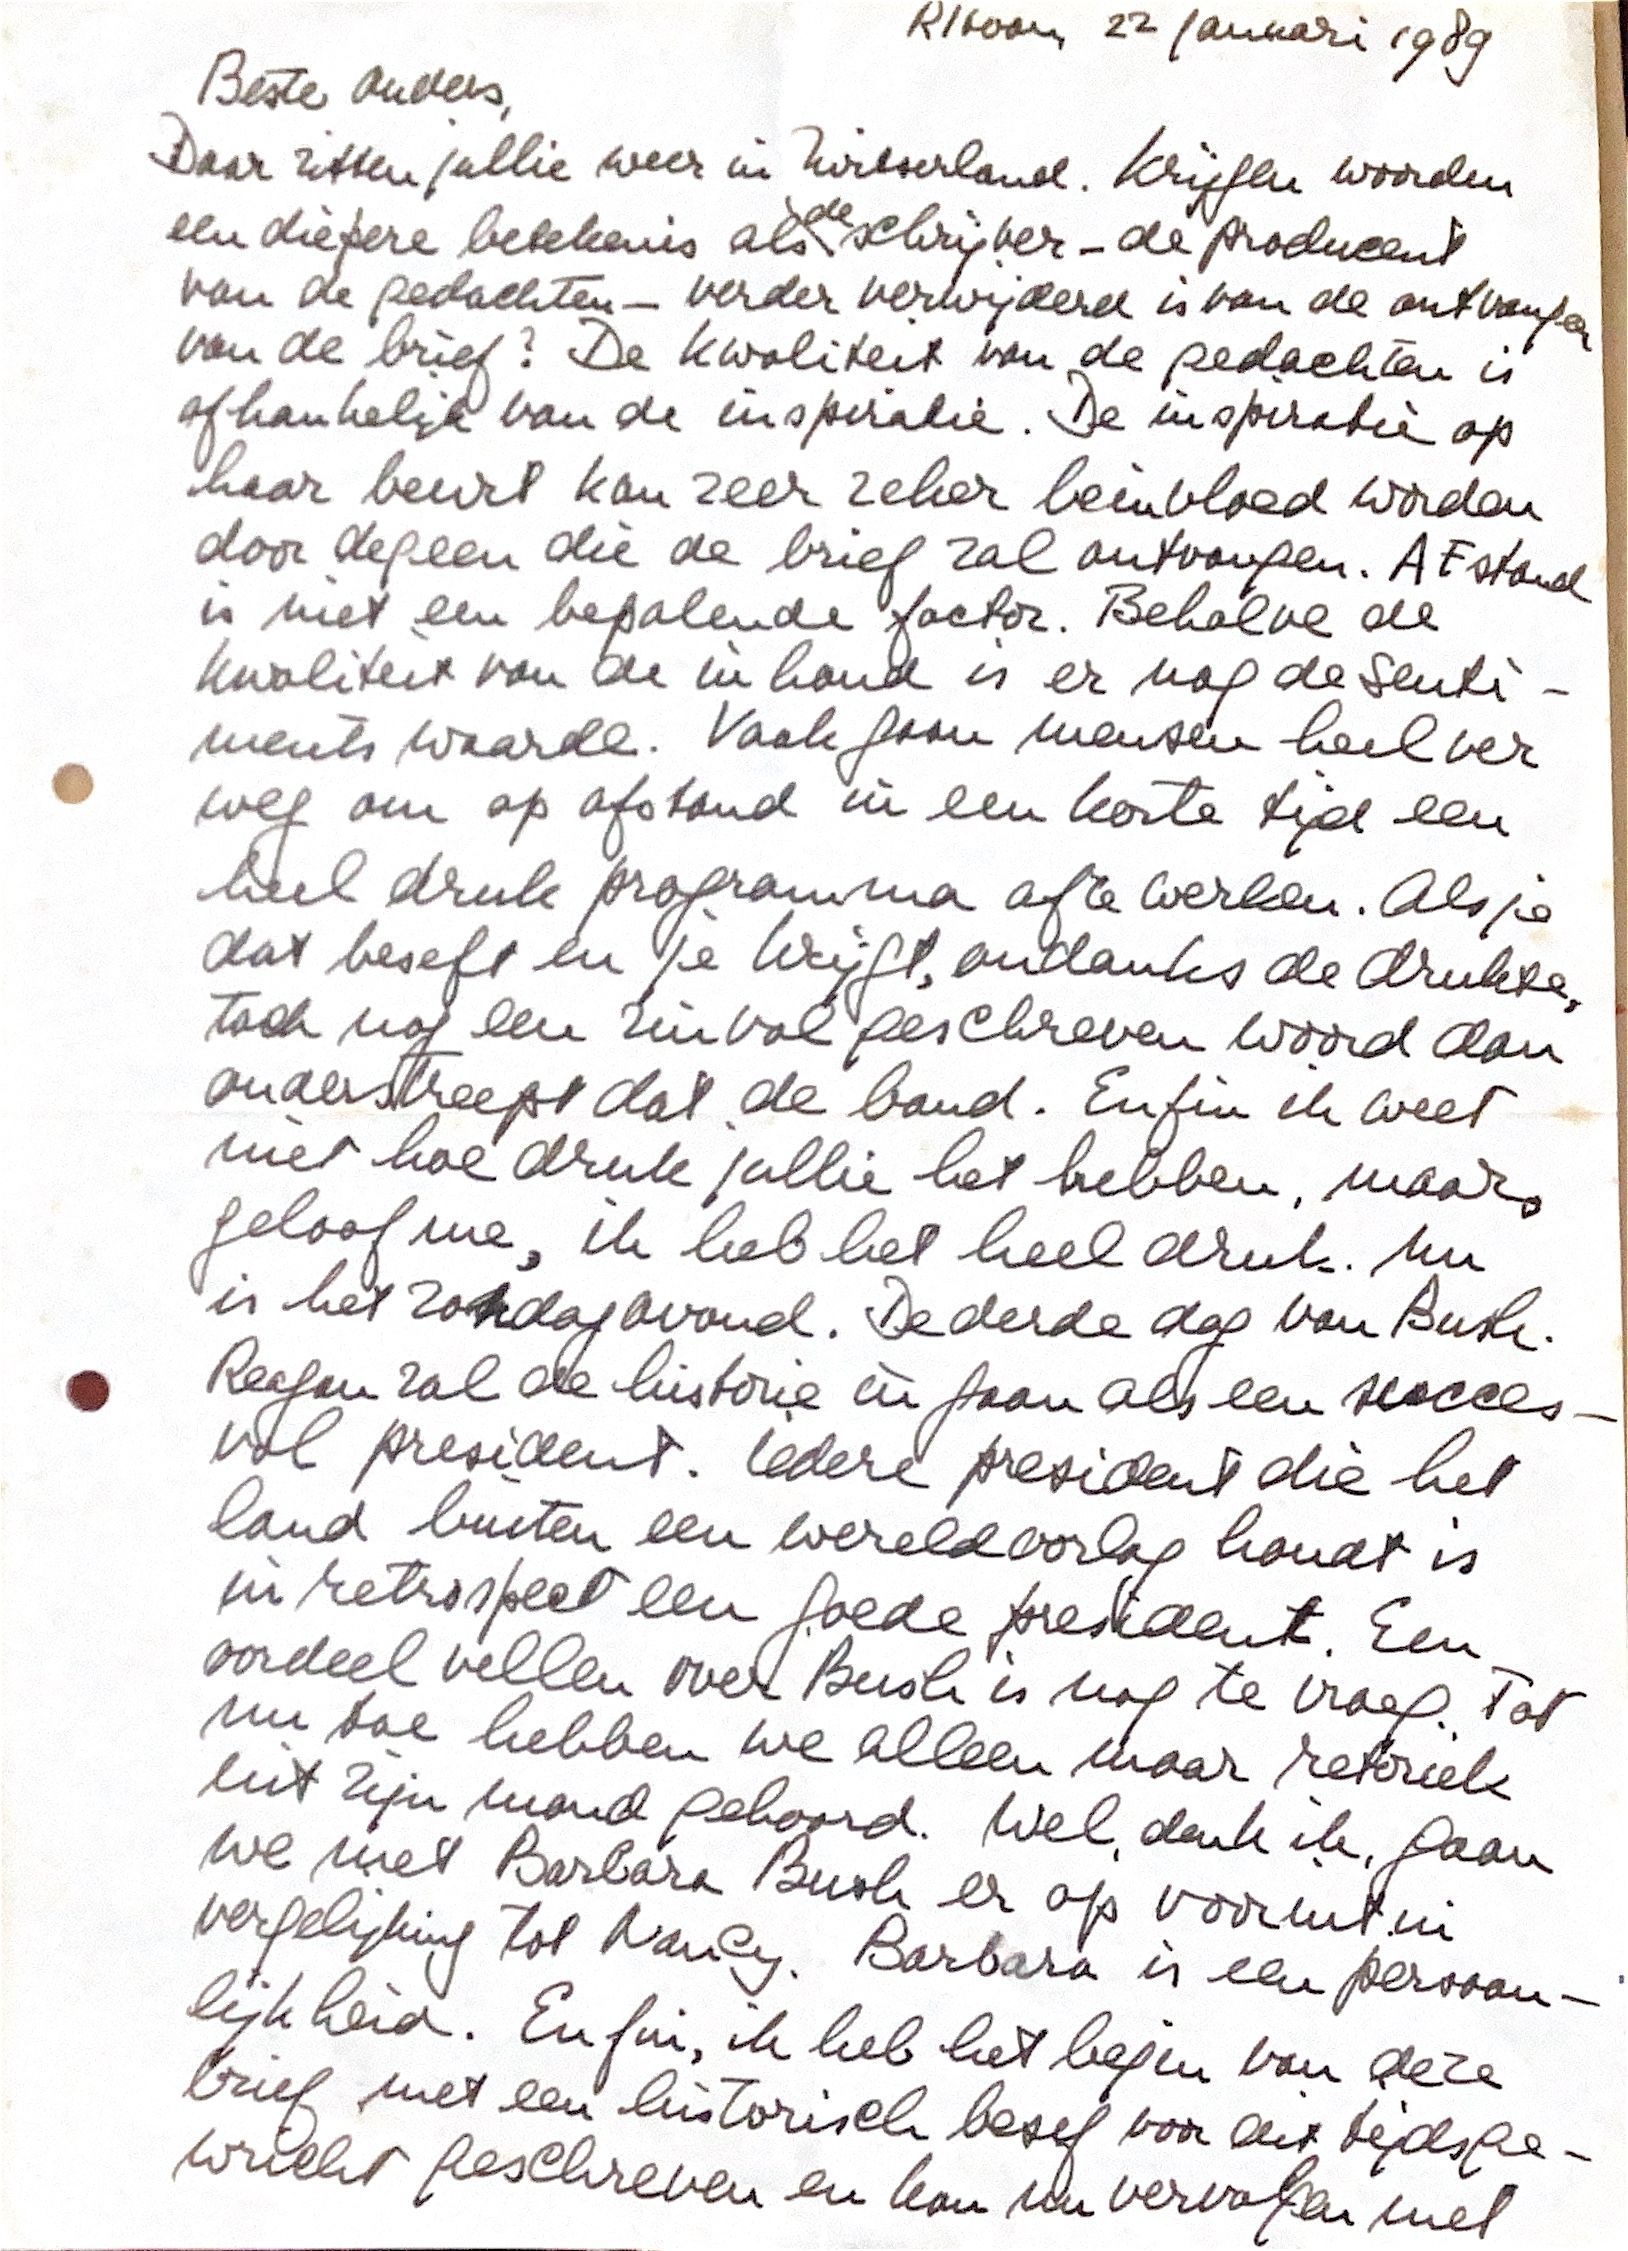 22 januari 1989
Beste Ouders,
Daar zitten jullie weer in Zwitserland. Krijgen woorden
een diepere betekenis als de schrijver – de producent
van de gedachten – verder verwijderd is van de ontvanger
van de brief? De kwaliteit van de gedachten is
afhankelijk van de inspiratie. De inspiratie op
haar beurt kan zeer zeker beinvloed worden
door degeen die de brief zal ontvangen. AFstand
is niet een bepalende factor. Behalve de
kwaliteit van de inhoud is er nog de senti-
ments waarde. Vaak gaan mensen heel ver
weg om op afstand in een korte tijd een
heel druk programma af te werken. Als je
dat beseft en je krijgt, ondanks de drukte,
toch nog een zinvol geschreven woord dan
onderstreept dat de band. Enfin ik weet
niet hoe druk jullie het hebben, maar,
geloof me, ik heb het heel druk. Nu
is het zondagavond. De derde dag van Bush.
Reagan zal de historie in gaan als een succes-
vol president. Iedere president die het
land buiten een wereldoorlog houdt is
in retrospect een goede president. Een
oordeel vellen over Bush is nog te vroeg. Tot
nu toe hebben we alleen maar retoriek
uit zijn mond gehoord. Wel, denk ik, gaan
we met Barbara Bush er op vooruit in
vergelijking tot Nancy. Barbara is een persoon-
lijkheid. Enfin, ik heb het begin van deze
brief met een historisch besef voor dit tijdsge-
wricht geschreven en kan nu vervolgen met